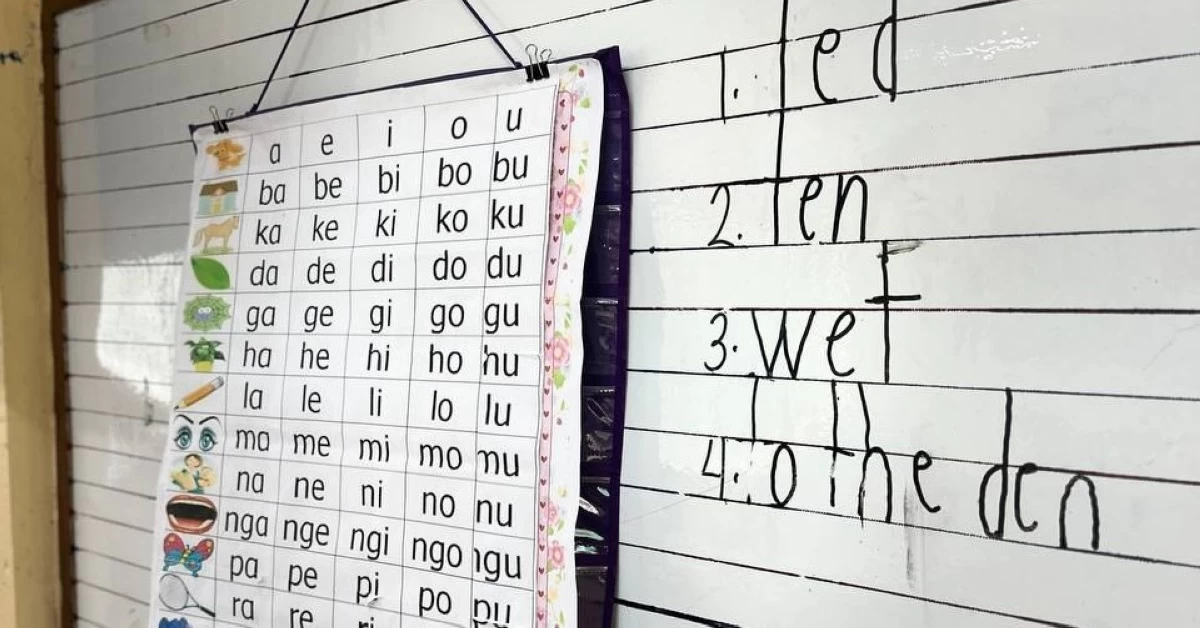 a e i o u
ba be bi bo bu
ka ke ki ko ku
da de di do du
ga ge gi go gu
ha he hi ho hu
la le li lo lu
ma me mi mo mu
na ne ni no nu
nga nge ngi ngo ngu
pa pe pi po pu
ra re ri
1. led
2. ten
3. wet
4. to the den